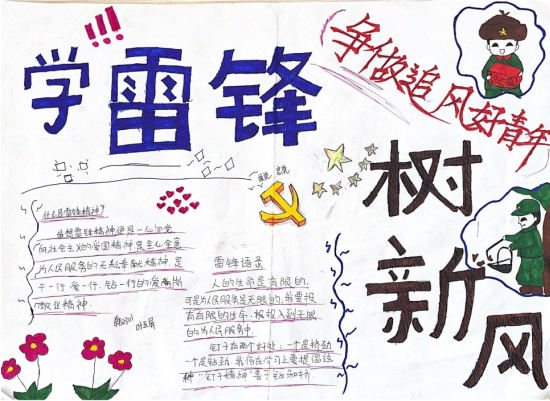 !!!
学雷锋
争做追风好青年
树新风
什么是雷锋精神?
雷锋精神便是一心向党
向社会主义的爱国精神是全心全意
为人民服务的无私奉献精神,是
干一行爱一行、钻一行的爱岗
敬业精神.
雷锋语录
人的生命是有限的,
可是为人民服务是无限的,我要投
有限的生命,投入到无限
的为人民服务中.
钉子有两个好处:一个是挤劲
一个是钻劲,我们在学习上要提倡这
种“钉子精神”善于钻和挤